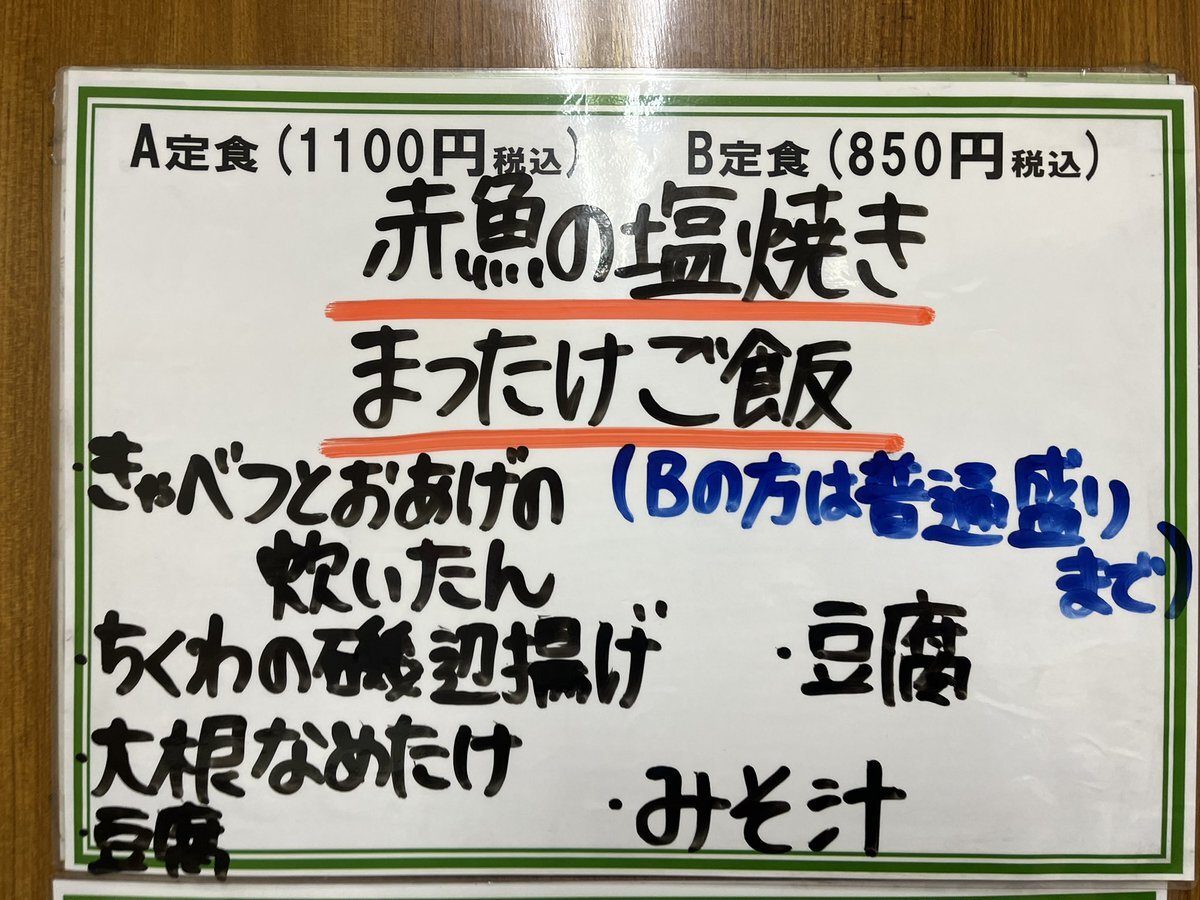 A定食(1100円税込) B定食(850円税込)
赤魚の塩焼き
まったけご飯
・きゃべつとおあげの
炊いたん
(Bの方は普通盛り
まで)
・ちくわの磯辺揚げ
・豆腐
・大根なめたけ
・みそ汁
・豆腐